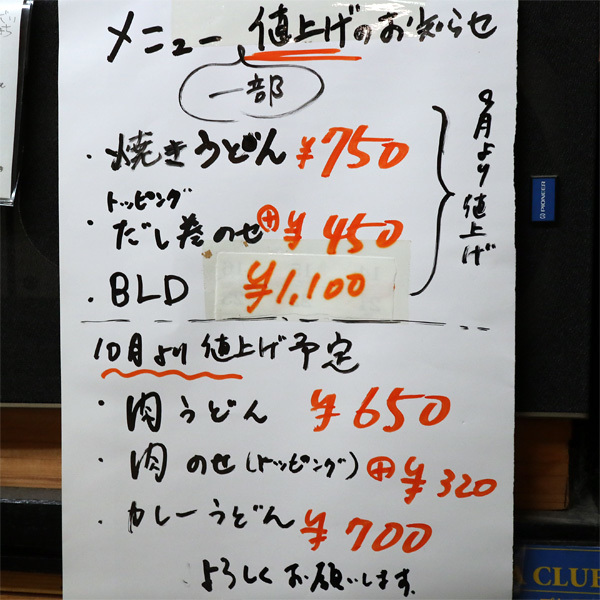 メニュー 値上げのお知らせ
一部
・焼きうどん ¥750
トッピング
・だし巻のせ ⊕¥450
・BLD ¥1,100
9月より値上げ
10月より値上げ予定
・肉うどん ¥650
・肉のせ(トッピング) ⊕¥320
・カレーうどん ¥700
よろしくお願いします。
PIONEER
CLUB